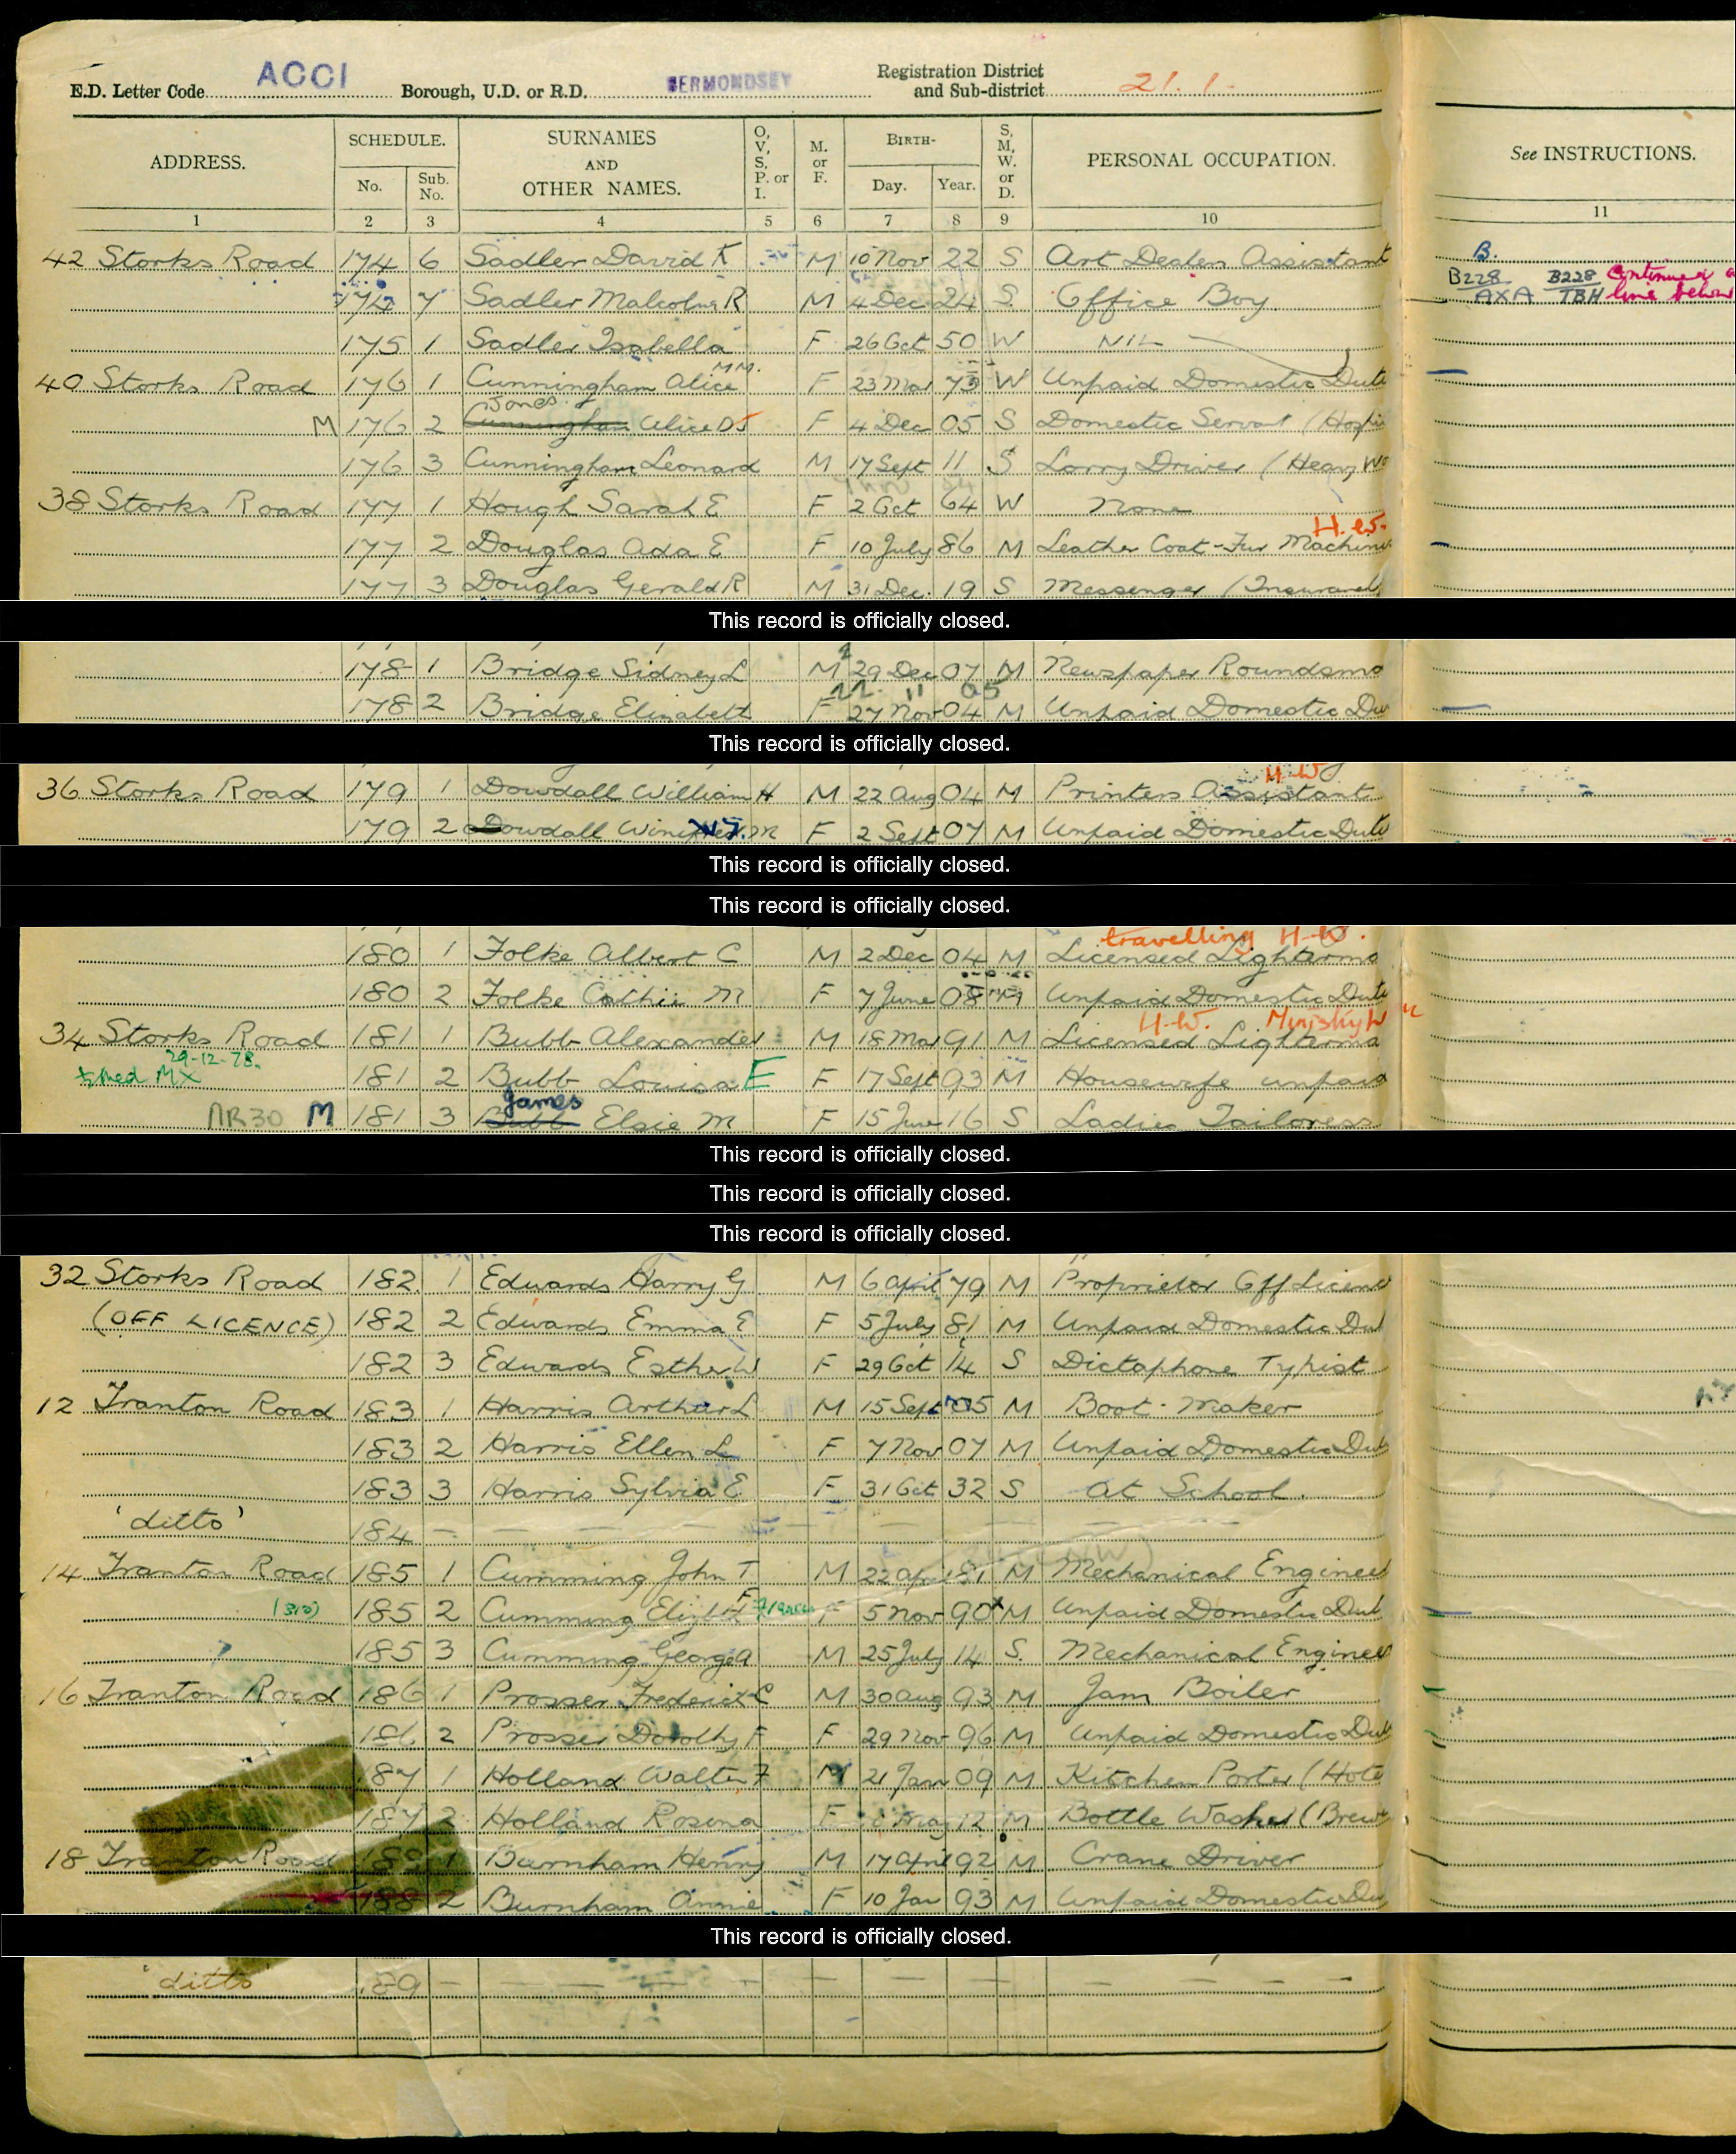 E.D. Letter Code ACCI Borough, U.D. or R.D. BERMONDSEY Registration District and Sub-district 21.1.
ADDRESS. SCHEDULE. No. Sub. No. SURNAMES AND OTHER NAMES. O, V, S, P. or I. M. or F. BIRTH- Day. Year. S, M, W. or D. PERSONAL OCCUPATION. See INSTRUCTIONS.
1 2 3 4 5 6 7 8 9 10 11
42 Storks Road 174 6 Sadler David K M 10 Nov 22 S Art Dealers Assistant B.
174 7 Sadler Malcolm R M 4 Dec 24 S. Office Boy B228 AXA B228 TBH Continued line below
175 1 Sadler Isabella F 26 Oct 50 W NIL
40 Storks Road 176 1 Cunningham Alice M M. F 23 Mar W Unpaid Domestic Dute
M 176 2 Jones Cunningham Alice D F 4 Dec 05 S Domestic Servant (Hospi
176 3 Cunningham Leonard M 17 Sept 11 S Lorry Driver (Heavy Wo
38 Storks Road 177 1 Hough Sarah E F 2 Oct 64 W None
177 2 Douglas Ada E F 10 July 86 M Leather Coat-Fur Machine H.W.
177 3 Douglas Gerald R M 31 Dec. 19 S Messenger (Insurance
This record is officially closed.
178 1 Bridge Sidney L M 29 Dec 07 M Newspaper Roundsma
22. 11 05
178 2 Bridge Elizabeth F 27 Nov 04 M Unpaid Domestic Du
This record is officially closed.
H.W.
36 Storks Road 179 1 Dowdall William H M 22 Aug 04 M Printers Assistant
179 2 Dowdall M F 2 Sept 07 M Unpaid Domestic Dute
This record is officially closed.
This record is officially closed.
travelling H-W.
180 1 Folke Albert C M 2 Dec 04 M Licensed Lighterma
180 2 Folke M F 7 June 08 M Unpaid Domestic Dute
H-W.
34 Storks Road 181 1 Bubb Alexander M 18 Mar 91 M Licensed Lighterma
29-12-78.
MX 181 2 Bubb Louisa E F 17 Sept 93 M Housewife unpaid
James
NR30 M 181 3 Bubb Elsie M F 15 June 16 S Ladies Tailoress
This record is officially closed.
This record is officially closed.
This record is officially closed.
32 Storks Road 182. 1 Edwards Harry G M 6 April 79 M Proprietor Off Licence
(OFF LICENCE) 182 2 Edwards Emma E F 5 July 81 M Unpaid Domestic Dut
182 3 Edwards Esther W F 29 Oct 14 S Dictaphone Typist
12 Tranton Road 183 1 Harris Arthur L M 15 Sept 05 M Boot-Maker
183 2 Harris Ellen L F 7 Nov 07 M Unpaid Domestic Dut
183 3 Harris Sylvia E F 31 Oct 32 S At School.
'ditto' 184 - - - - - -
14 Tranton Road 185 1 Cumming John T M 22 Apr 81 M Mechanical Engineer
185 2 Cumming F 5 Nov 90 M Unpaid Domestic Dut
185 3 Cumming George A M 25 July 14 S. Mechanical Engineer
16 Tranton Road 186 1 Prosser Frederick C M 30 Aug 93 M Jam Boiler
186 2 Prosser Dorothy F F 29 Nov 96 M Unpaid Domestic Dut
187 1 Holland Walter F M 21 Jan 09 M Kitchen Porter (Hote
187 2 Holland Rosina F May 12 M Bottle Washer (Brew
18 Tranton Road 188 1 Burnham Henry M 17 April 92 M Crane Driver
188 2 Burnham Annie F 10 Jan 93 M Unpaid Domestic Du
This record is officially closed.
'ditto' 189 - - - - - -